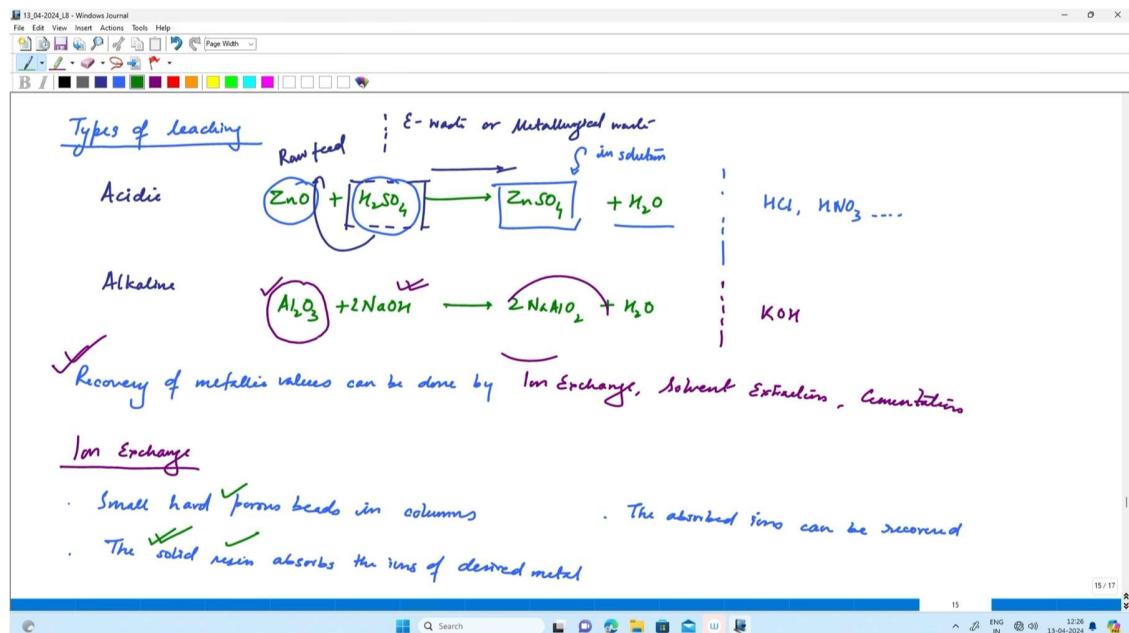 13_04-2024_L8 - Windows Journal
File Edit View Insert Actions Tools Help
Page Width
B I
Types of leaching
E-waste or Metallurgical waste
Raw feed
in solution
Acidic ZnO + H₂SO₄ → ZnSO₄ + H₂O HCl, HNO₃ ....
Alkaline Al₂O₃ + 2NaOH → 2NaAlO₂ + H₂O KOH
Recovery of metallic values can be done by Ion Exchange, Solvent Extraction, Cementation
Ion Exchange
. Small hard porous beads in columns
. The absorbed ions can be recovered
. The solid resin absorbs the ions of desired metal
15 / 17
15
Search
ENG
IN
12:26
13-04-2024